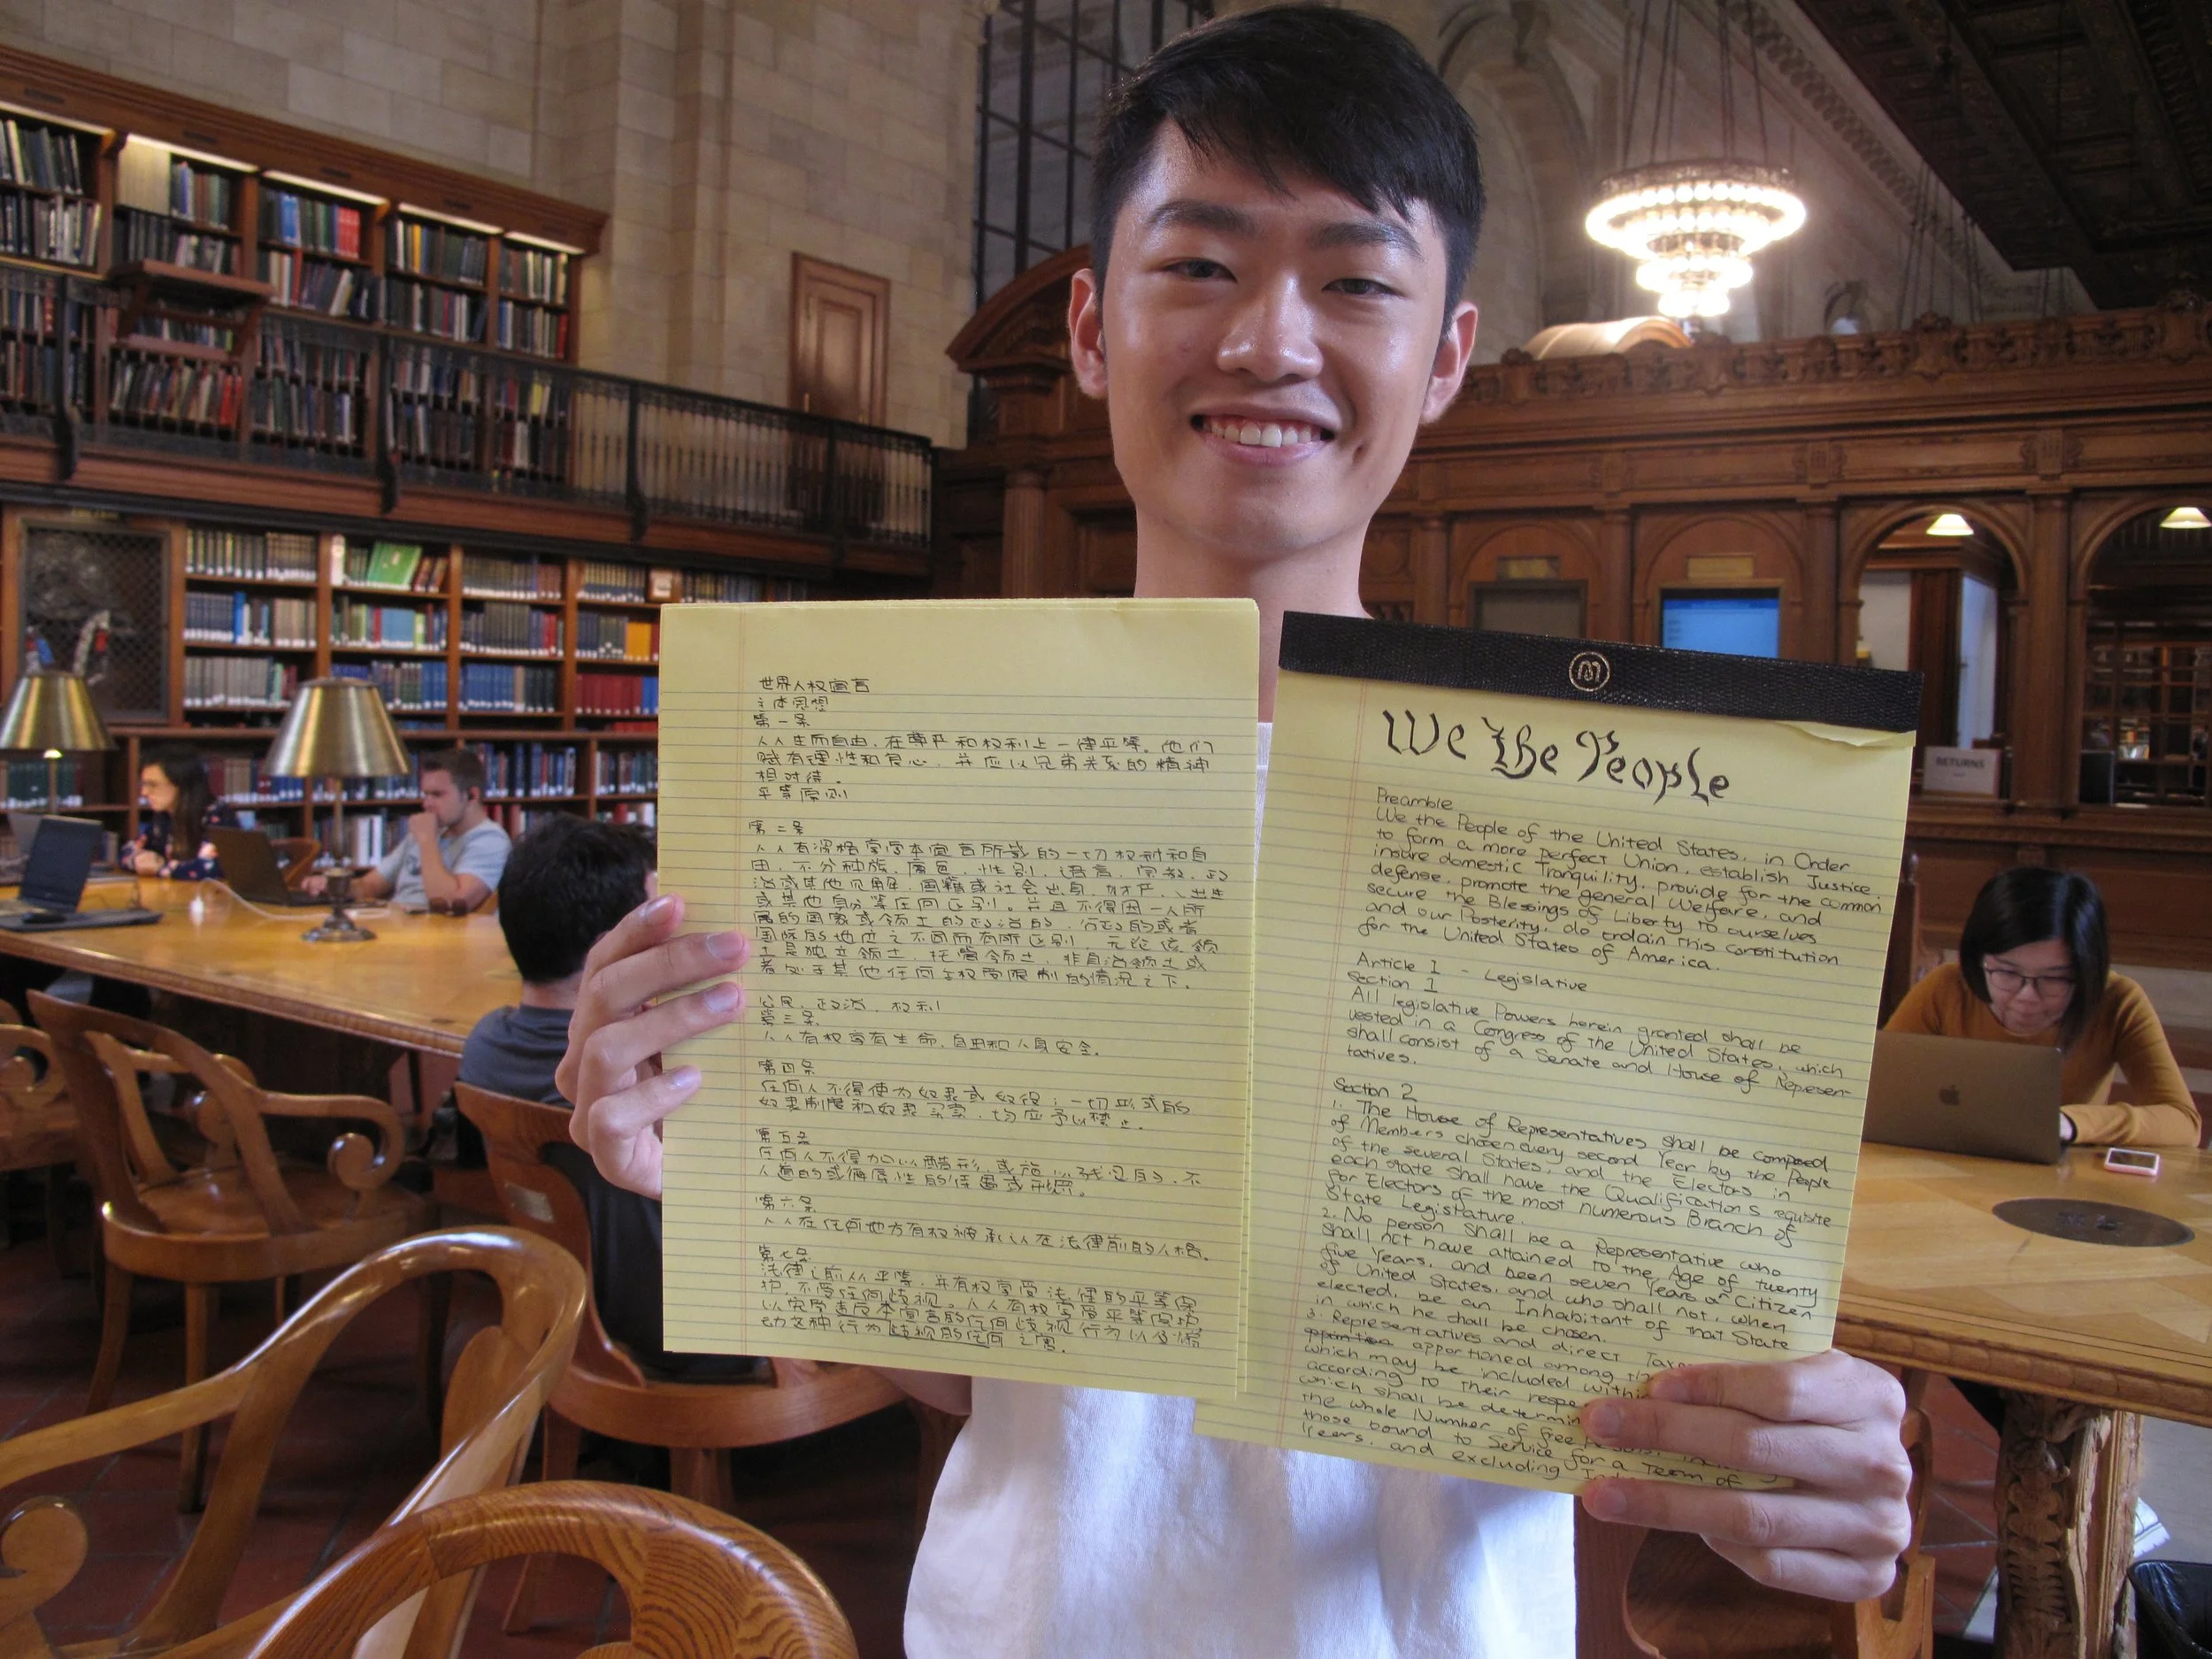 世界人权宣言
主体思想
第一条
人人生而自由,在尊严和权利上一律平等。他们
赋有理性和良心,并应以兄弟关系的精神
相对待。
平等原则
第二条
人人有资格享受本宣言所载的一切权利和自
由,不分种族,肤色,性别,语言,宗教,政
治或其他见解,国籍或社会出身,财产,出生
或其他身分等任何区别。并且不得因一人所
属的国家或领土的政治的,行政的或者
国际的地位之不同而有所区别,无论该领
土是独立领土,托管领土,非自治领土或
者处于其他任何主权受限制的情况之下。
公民,政治,权利
第三条
人人有权享有生命,自由和人身安全。
第四条
任何人不得使为奴隶或奴役;一切形式的
奴隶制度和奴隶买卖,均应予以禁止。
第五条
任何人不得加以酷刑,或施以残忍的,不
人道的或侮辱性的待遇或刑罚。
第六条
人人在任何地方有权被承认在法律前的人格。
第七条
法律之前人人平等,并有权享受法律的平等保
护,不受任何歧视。人人有权享受平等保护,
以免受违反本宣言的任何歧视行为以及煽
动这种行为歧视的任何之害。
We The People
Preamble
We the People of the United States, in Order
to form a more perfect Union, establish Justice,
insure domestic Tranquility, provide for the common
defense, promote the general Welfare, and
secure the Blessings of Liberty to ourselves
and our Posterity, do ordain this constitution
for the United States of America.
Article 1 - Legislative
Section 1
All legislative Powers herein granted shall be
vested in a Congress of the United States, which
shall consist of a Senate and House of Represen-
tatives.
Section 2
1. The House of Representatives shall be composed
of Members chosen every second Year by the People
of the several States, and the Electors in
each state shall have the Qualifications requisite
for Electors of the most numerous Branch of
State Legislature.
2. No person shall be a Representative who
shall not have attained to the Age of twenty
five Years, and been seven Years a Citizen
of United States, and who shall not, when
elected, be an Inhabitant of that State
in which he shall be chosen.
3. Representatives and direct Taxes
apportioned among
which may be included within
according to their respe
which shall be determin
the whole Number of free
those bound to Service for a Term of
Years, and excluding
RETURNS